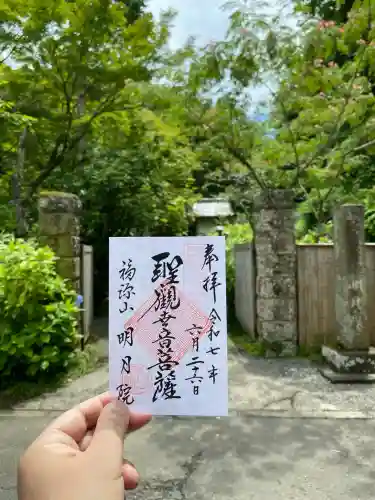 奉拝 令和七年
六月二十六日
聖観世音菩薩
福源山 明月院